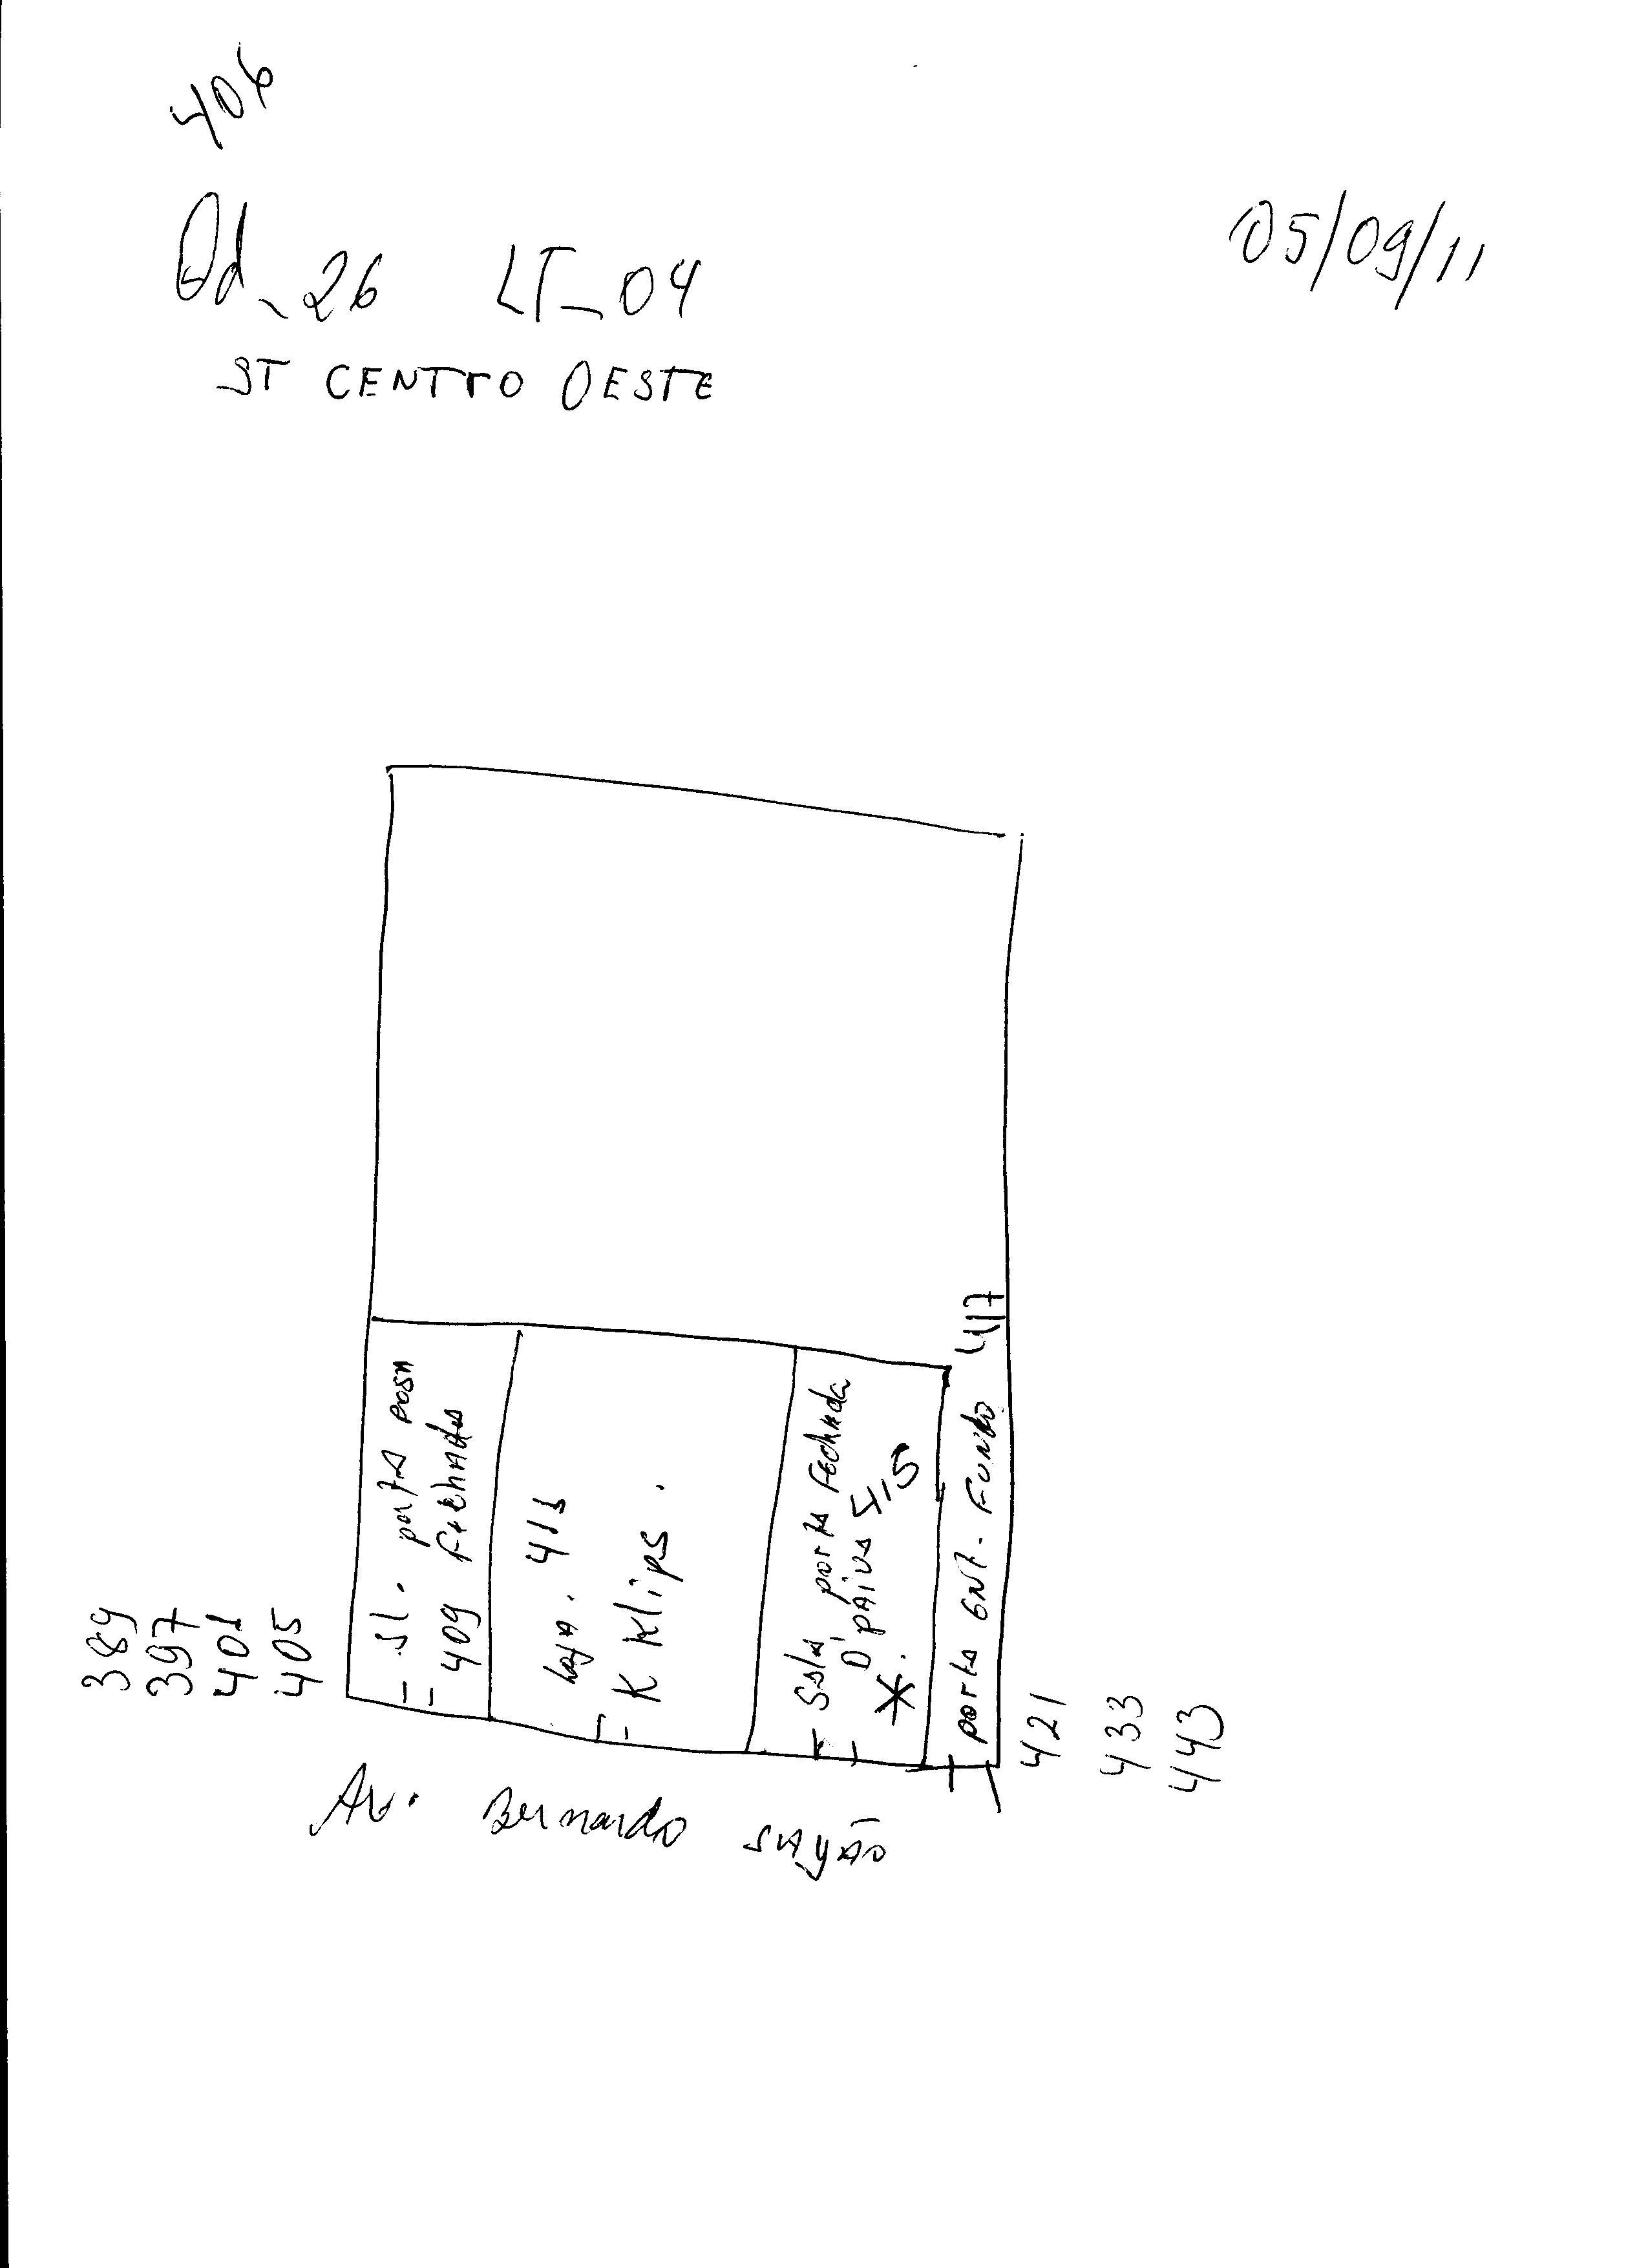 406
Qd_26 LT_04
05/09/11
ST CENTrO OESTE
389
397
401
405
Sl. porta
409 Fechadas
Loja. 411
K Klips.
Sala porta Fechada
D'paiva 415
*.
porta ent. Fundo 417
421
433
443
Av. Bernardo SAyÃo